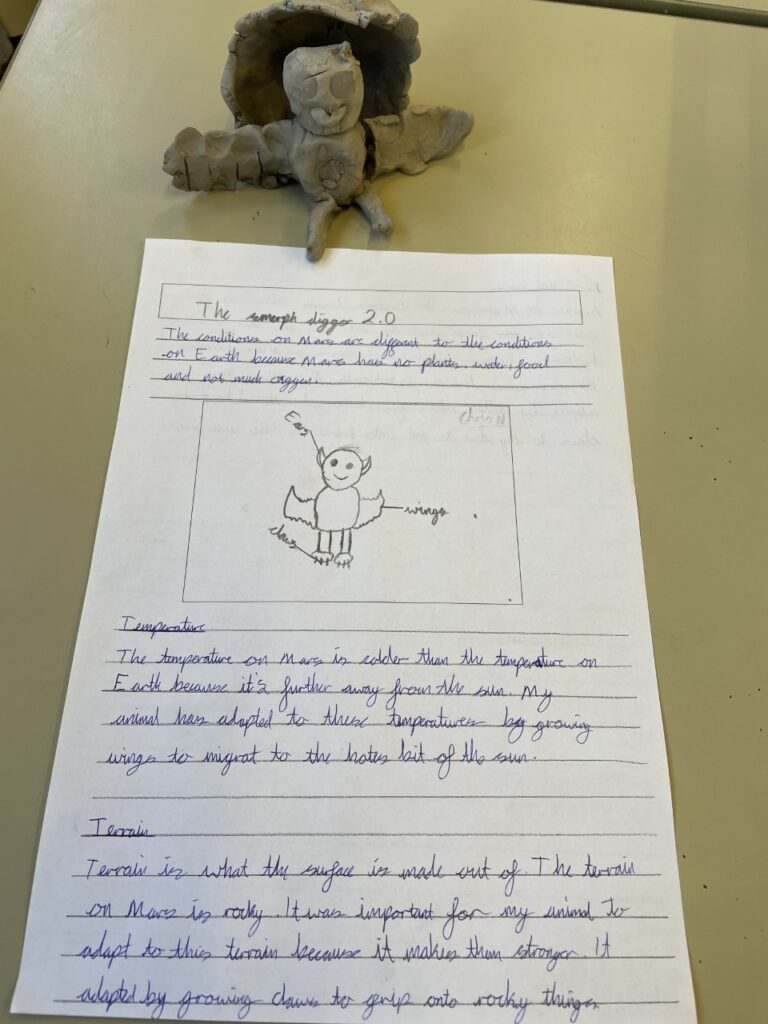 The smerph digger 2.0
The conditions on Mars are different to the conditions
on Earth because Mars has no plants, water, food
and not much oxygen.
Ears
wings
claws
Temperature
The temperature on Mars is colder than the temperature on
Earth because it's further away from the sun. My
animal has adapted to these temperatures by growing
wings to migrat to the hotes bit of the sun.
Terrain
Terrain is what the surface is made out of. The terrain
on Mars is rocky. It was important for my animal to
adapt to this terrain because it makes them stronger. It
adapted by growing claws to grip onto rocky things